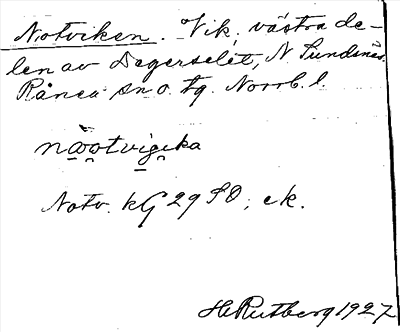 Notviken. Vik. västra de-
len av Degerselet, N Sundsnäs.
Råneå sn o. tg. Norrb. l.
nåo̯tvigi̯ka
Notv. kG 29 SO; ek.
H. Rutberg 1927